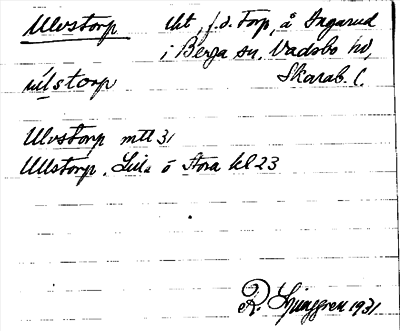 Ulvstorp lht, f.d. Torp, å Ingarud
i Berga sn, Vadsbo hd,
ulstorp Skarab. l.
Ulvstorp mtl 31
Ullstorp, Lilla o Stora kl 23
R. Ljunggren 1931.